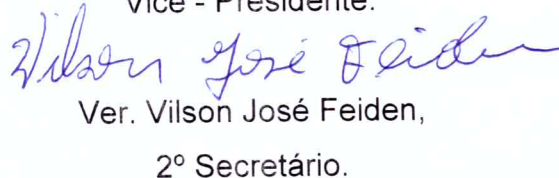 Vice - Presidente.
Vilson José Feiden
Ver. Vilson José Feiden,
2º Secretário.